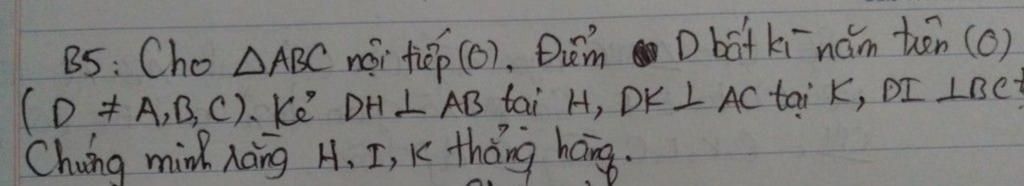 B5: Cho △ABC nội tiếp (O). Điểm D bất kì nằm trên (O)
(D ≠ A,B,C). Kẻ DH ⊥ AB tại H, DK ⊥ AC tại K, DI ⊥ BC
Chứng minh rằng H, I, K thẳng hàng.